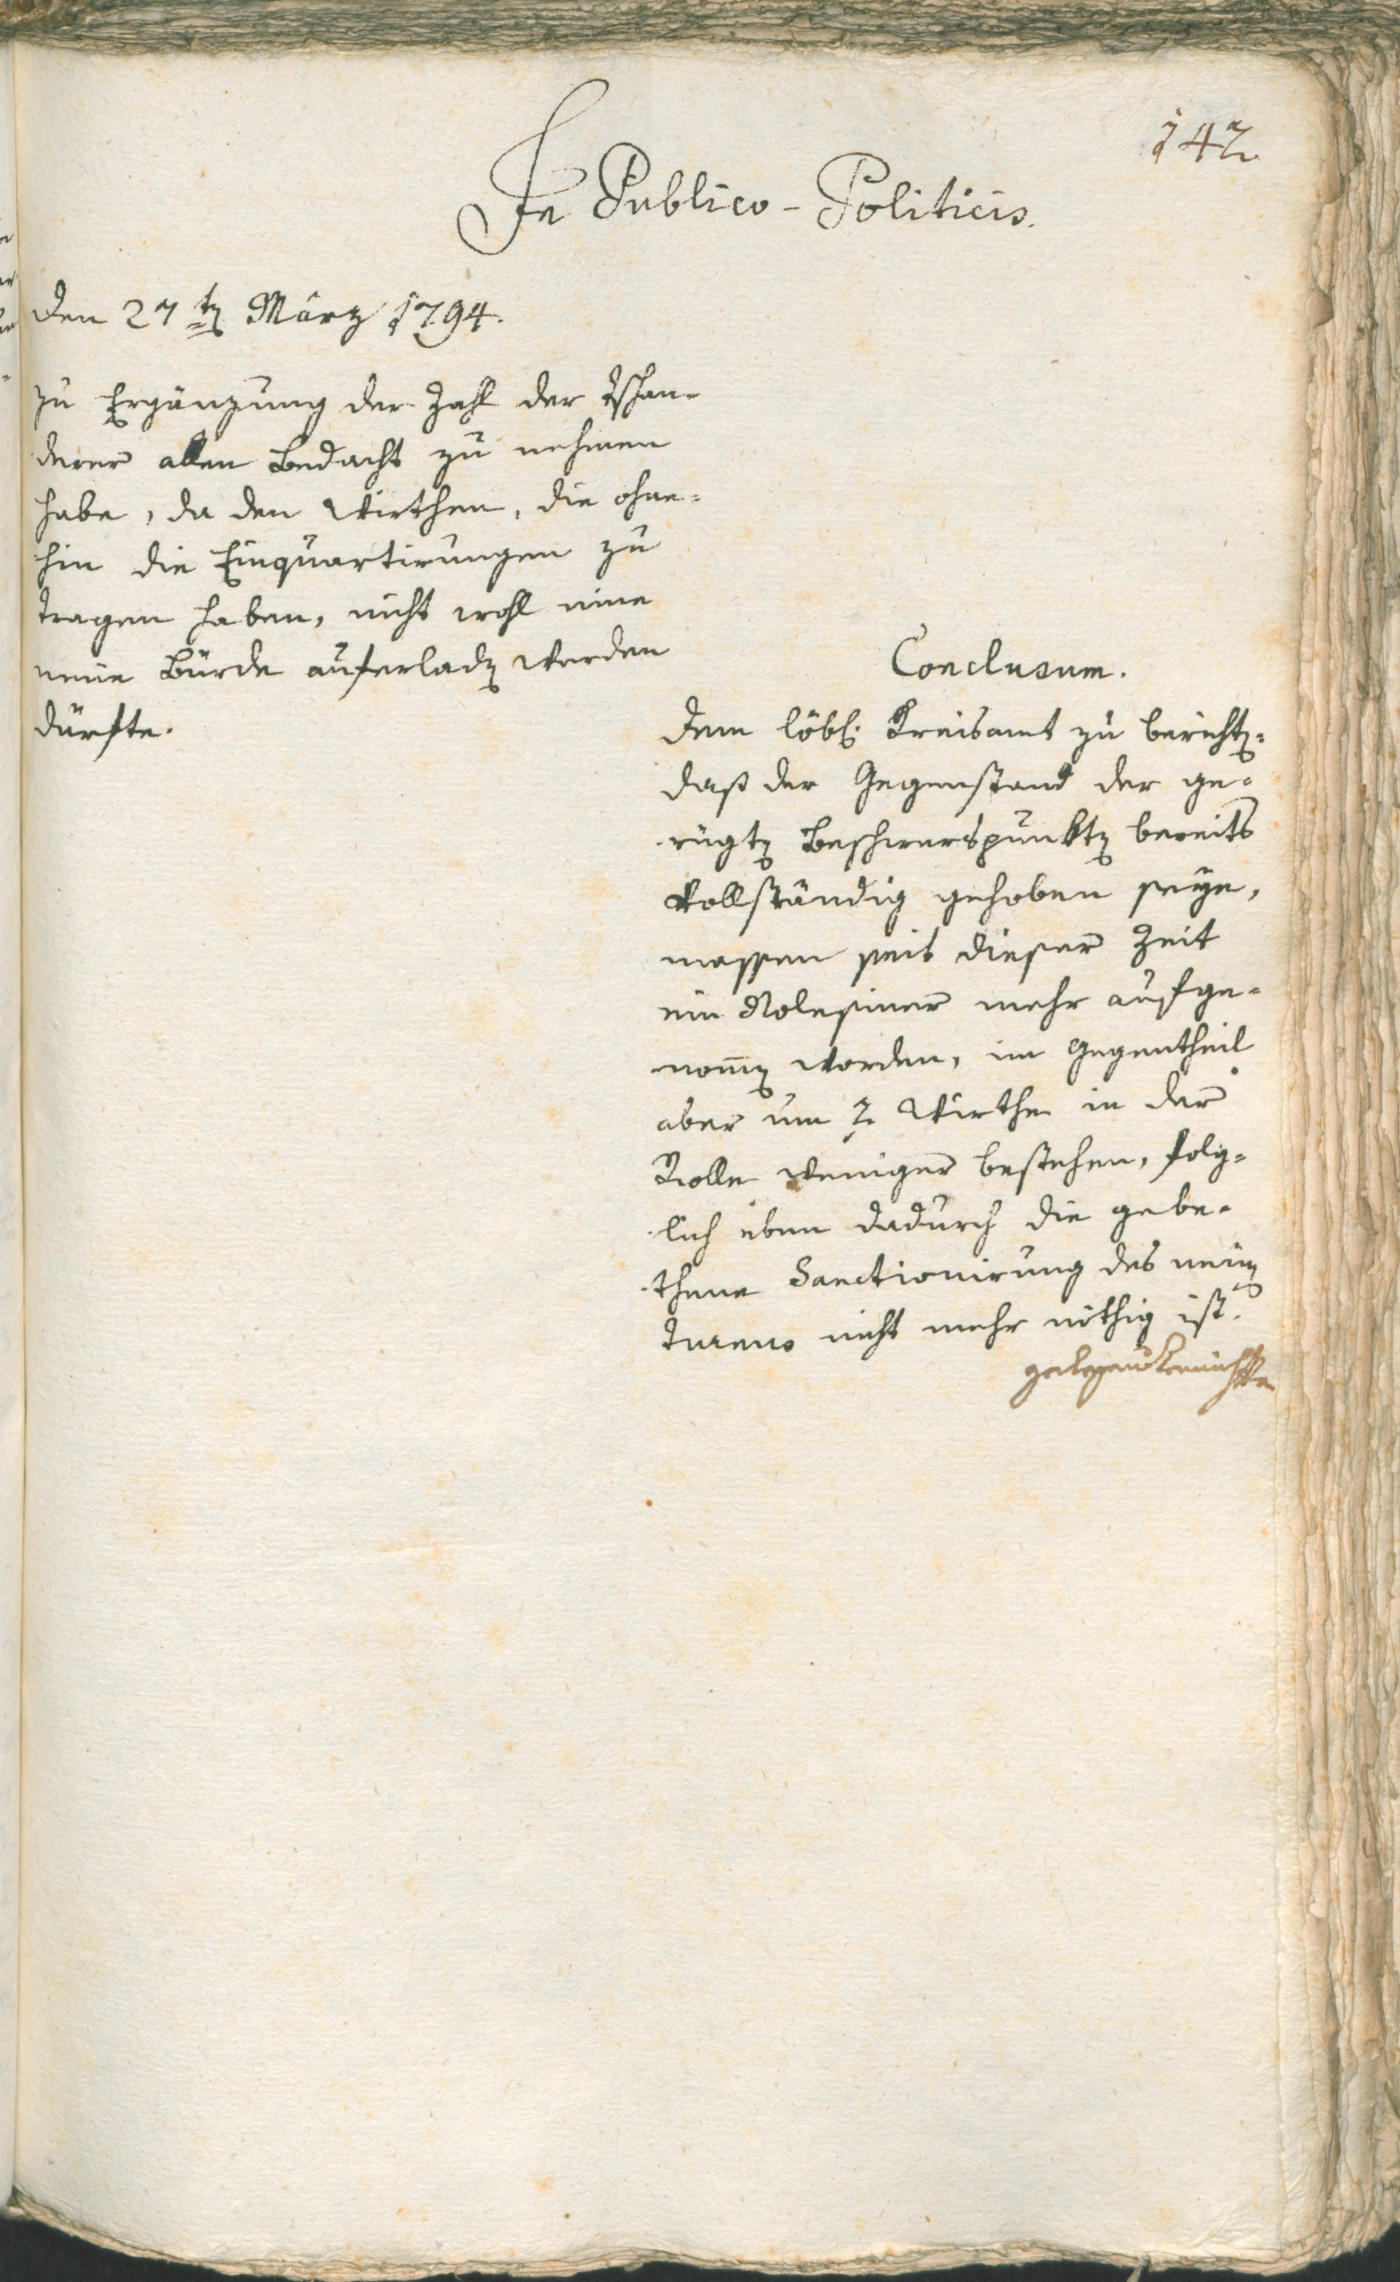 142
In Publico-Politicis.
Den 27ten März 1794.
zu Ergänzung der Zahl der Tschan-
derer allen Bedacht zu nehmen
habe, da den Wirthen, die ohne-
hin die Einquartirungen zu
tragen haben, nicht wohl eine
neue Bürde auferladen werden
dürfte.
Conclusum.
Dem löbl. Kreisamt zu berichten,
daß der Gegenstand der ge-
rügten Beschwerspunkten bereits
vollständig gehoben seye,
massen seit dieser Zeit
ein Rolesiner mehr aufge-
nommen worden, im Gegentheil
aber um 2 Wirthe in der
Rolle weniger bestehen, folg-
lich eben dadurch die gebe-
thene Sanctionirung des neuen
Turnus nicht mehr nöthig ist.